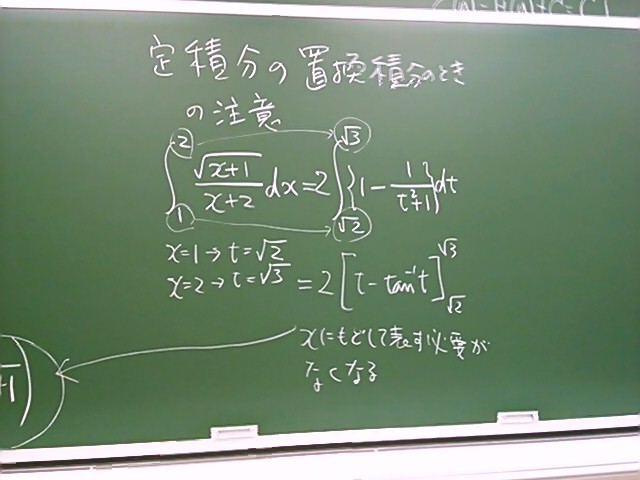 定積分の置換積分のとき
の注意
∫₁² √(x+1)/(x+2) dx = 2 ∫_{√2}^{√3} {1 - 1/(t²+1)} dt
x=1→t=√2
x=2→t=√3
= 2 [t - tan⁻¹t]_{√2}^{√3}
xにもどして表す必要が
なくなる
+1)